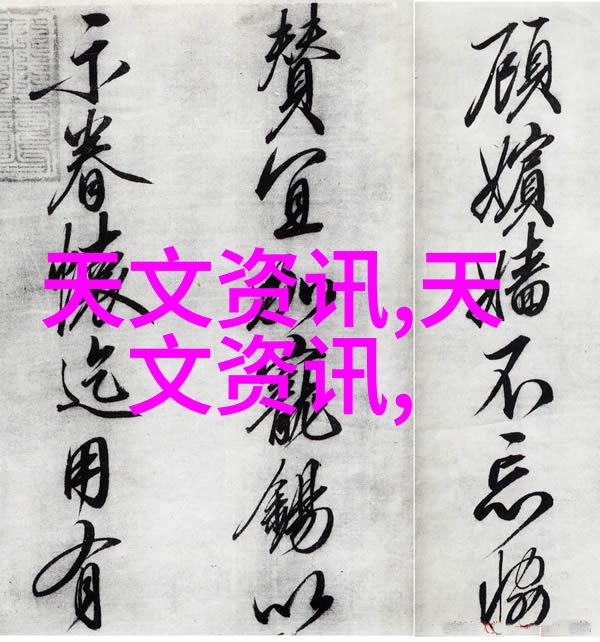 天文资讯,天
文资讯,
顧嬪嬙不忘恊
賛宜加寵錫以
示眷懷迄用有